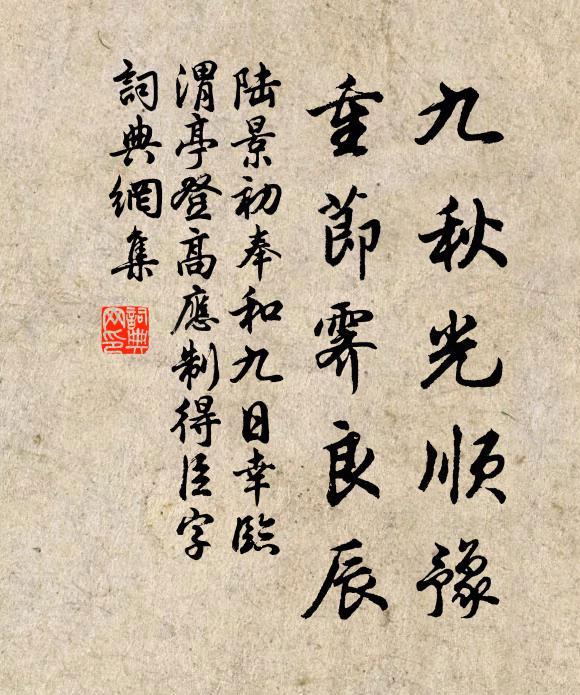 九秋光順豫
重節霽良辰
陸景初奉和九日幸臨
渭亭登高應制得臣字
詞典網集
詞典
网印